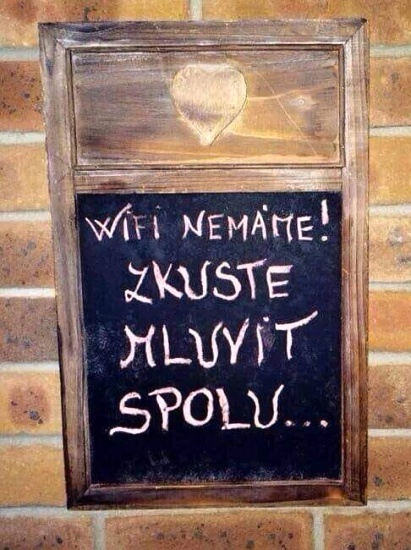 WIFI NEMÁME!
ZKUSTE
MLUVIT
SPOLU...